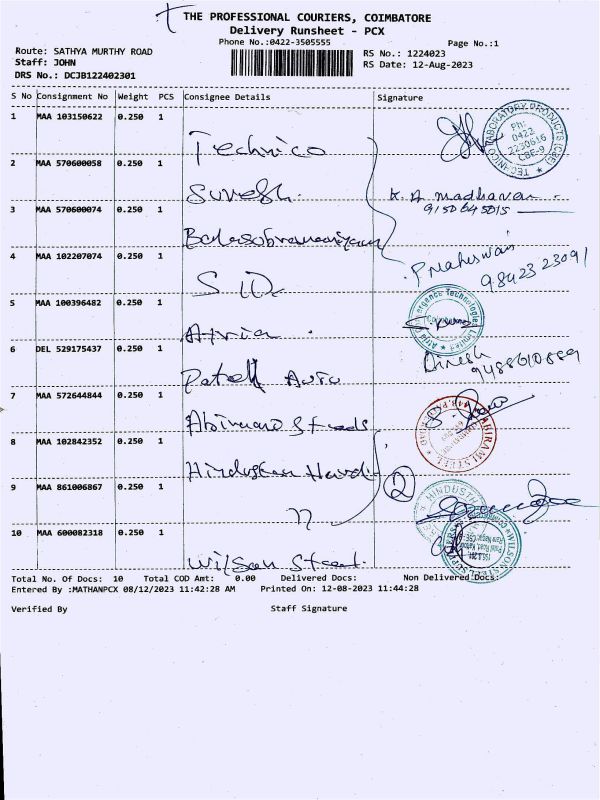 THE PROFESSIONAL COURIERS, COIMBATORE
Delivery Runsheet - PCX
Phone No.:0422-3505555
Page No.:1
Route: SATHYA MURTHY ROAD
Staff: JOHN
DRS No.: DCJB122402301
RS No.: 1224023
RS Date: 12-Aug-2023
S No Consignment No Weight PCS Consignee Details Signature
1 MAA 103150622 0.250 1 Technico
TECHNICO LABORATORY PRODUCTS (CBE)
Ph:
0422
2230616
CBE-9
2 MAA 570600058 0.250 1 Suresh.
K. A madhavan
9150645015
3 MAA 570600074 0.250 1 Balasubramaniyam
4 MAA 102207074 0.250 1 S. ID.
P. Maheswari
98423 23091
5 MAA 100396482 0.250 1 Atria
6 DEL 529175437 0.250 1 Patell Auto
Dinesh
9488610889
7 MAA 572644844 0.250 1 Abirami Steels
ABIRAMI STEEL
8 MAA 102842352 0.250 1 Hindustan Hardi
2
9 MAA 861006867 0.250 1 "
HINDUSTH
10 MAA 600082318 0.250 1 Wilson Steel.
WILSON STEEL SUPPLIERS
Total No. Of Docs: 10 Total COD Amt: 0.00 Delivered Docs: Non Delivered Docs:
Entered By :MATHANPCX 08/12/2023 11:42:28 AM Printed On: 12-08-2023 11:44:28
Verified By Staff Signature